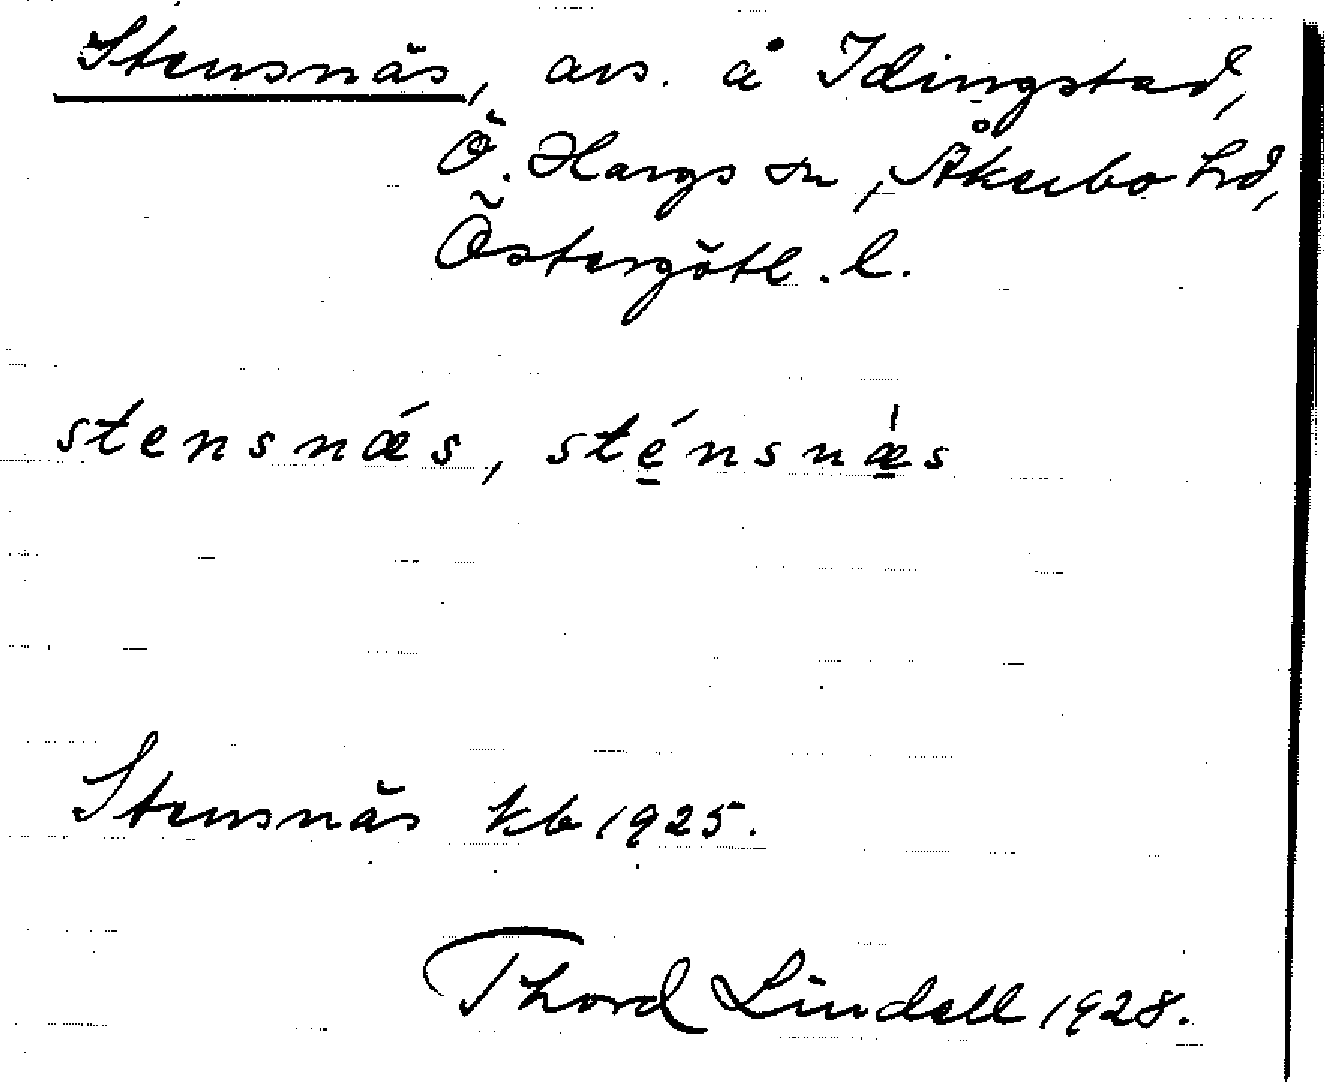 Stensnäs, avs. å Idingstad,
Ö. Hargs sn, Åkerbo hd,
Östergötl. l.
stensnǽs, sténsnæ̍s
Stensnäs kb 1925.
Thord Lindell 1928.